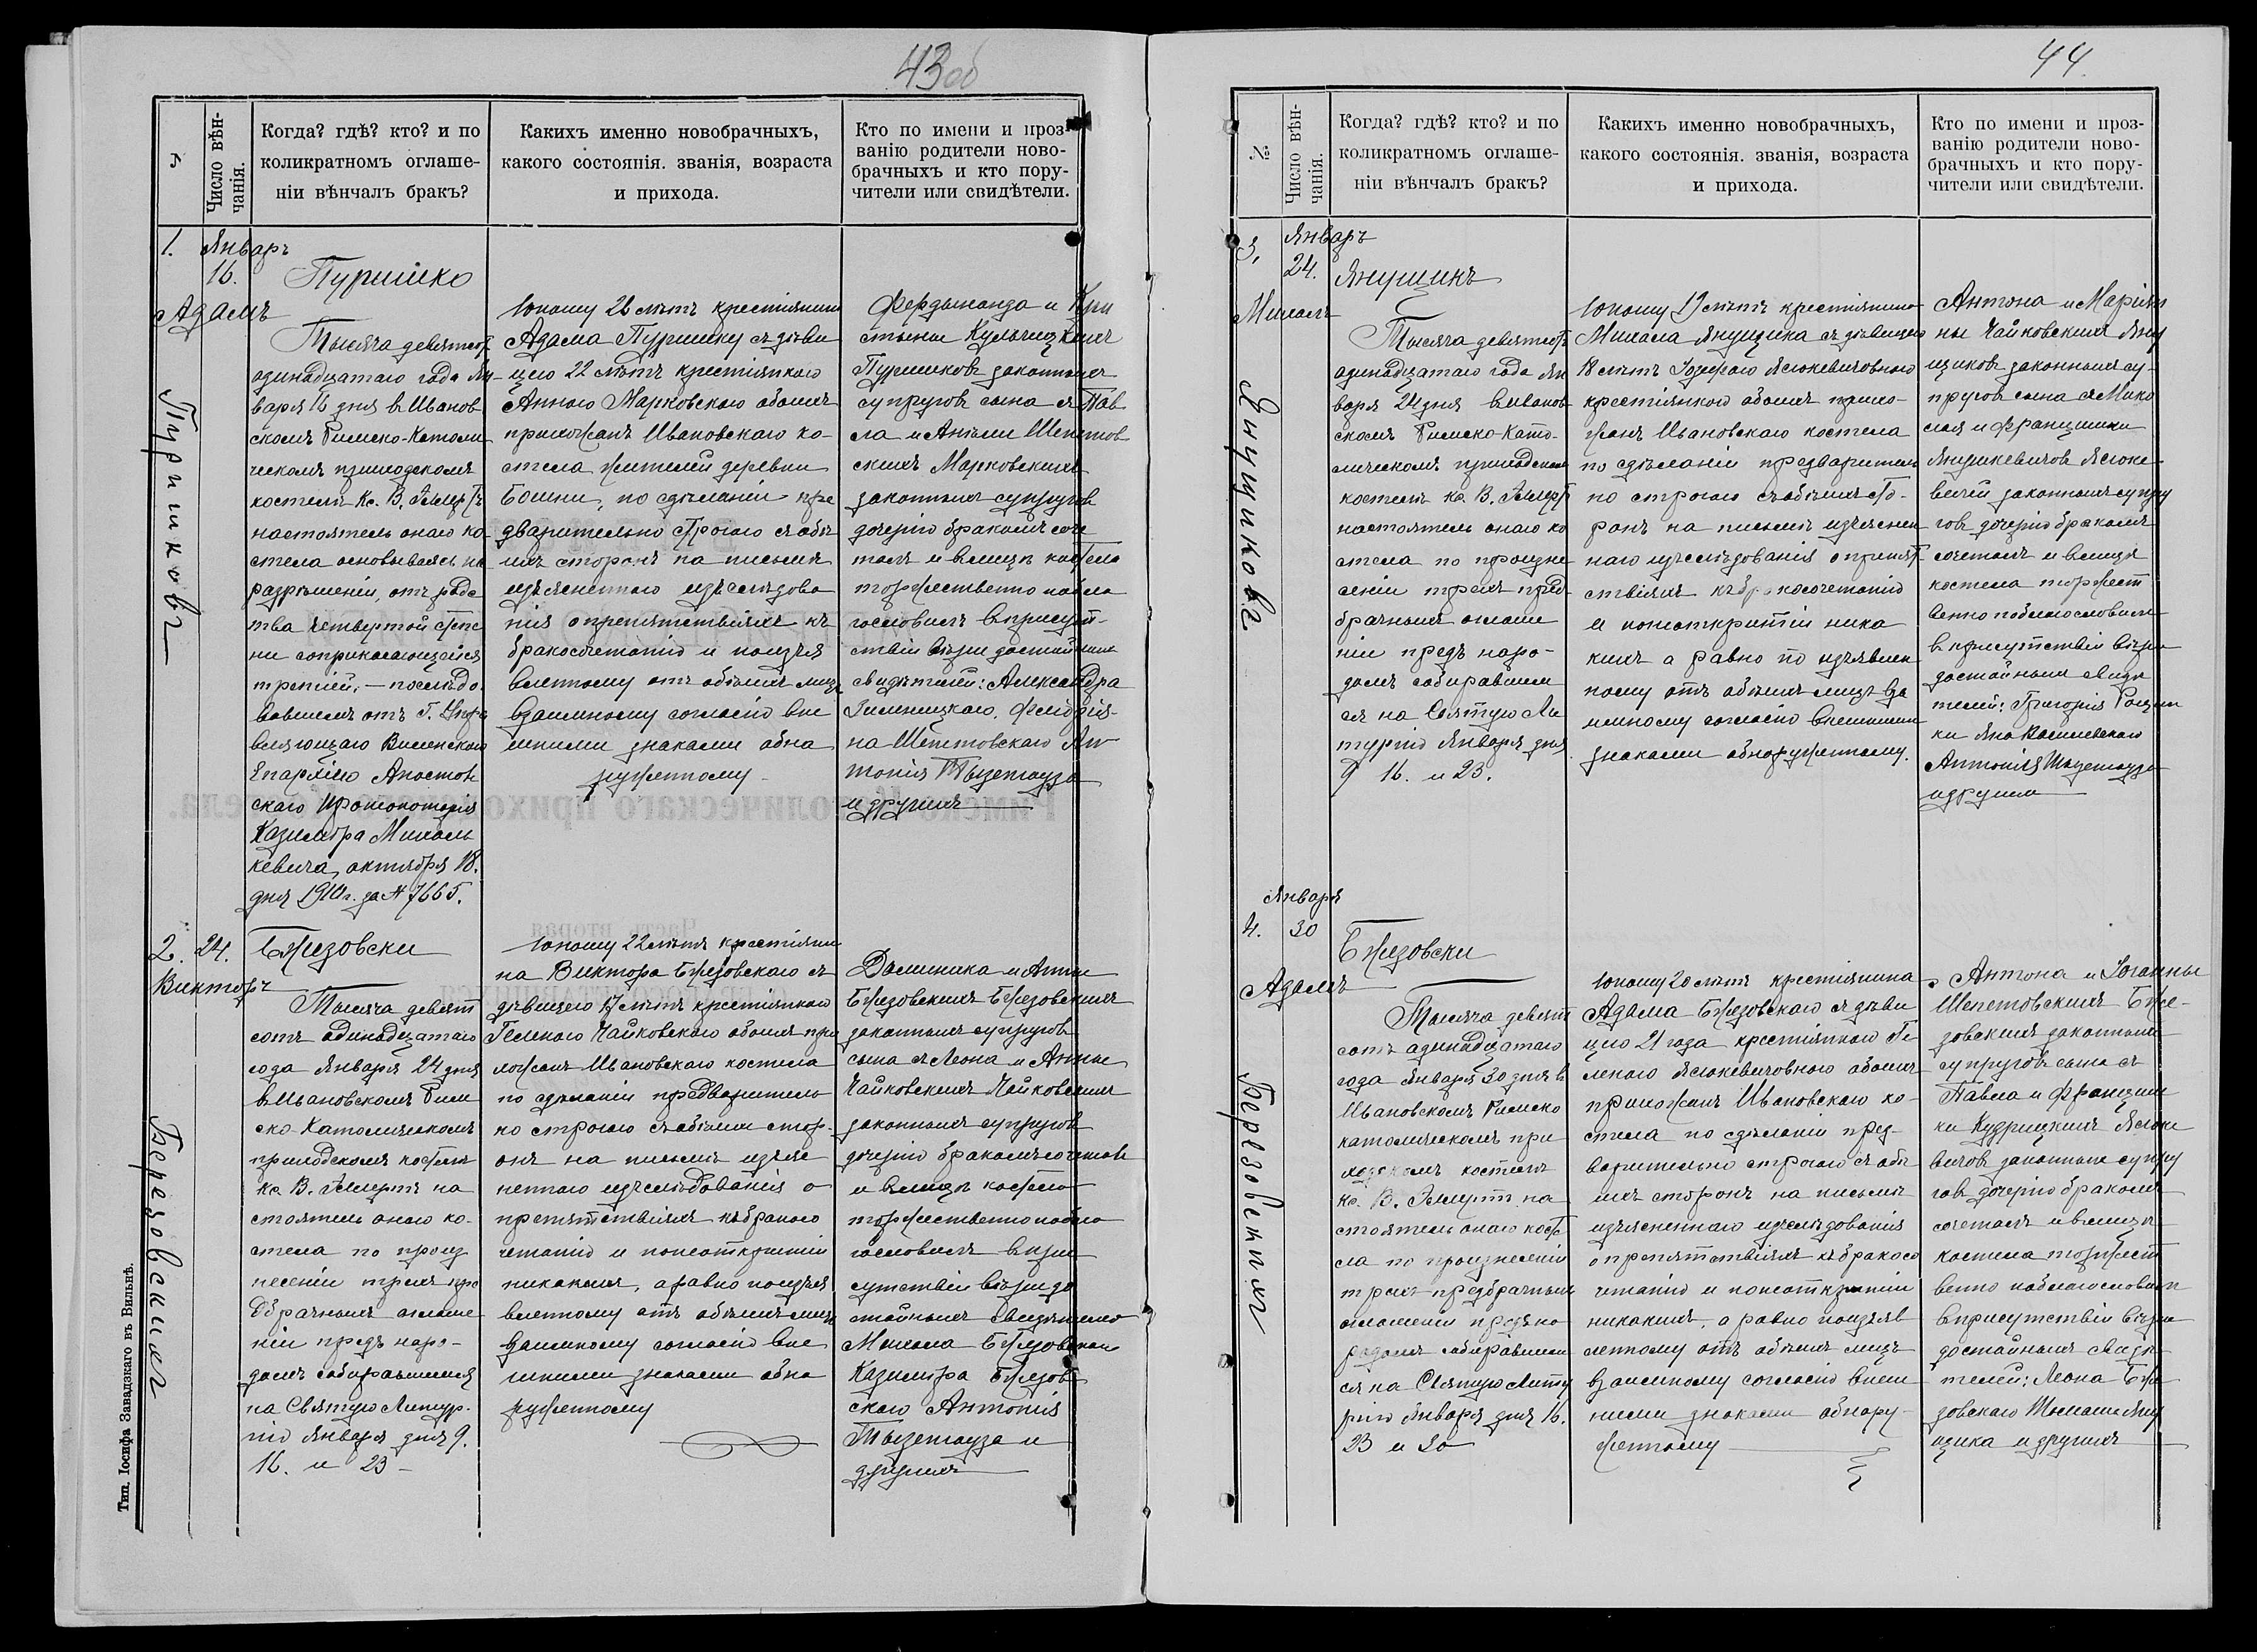 43об
№
Число вѣн-
чанія.
Когда? гдѣ? кто? и по
коликратномъ оглаше-
ніи вѣнчалъ бракъ?
Какихъ именно новобрачныхъ,
какого состоянія. званія, возраста
и прихода.
Кто по имени и проз-
ванію родители ново-
брачныхъ и кто пору-
чители или свидѣтели.
1.
Январь
16.
Адамъ
Пуришковъ
Пуришко
Тысяча девятсот
одинадцатаго года Ян-
варя 16 дня в Иванов
скомъ Римско-Католи
ческомъ приходскомъ
костелѣ Кс. В. Эллертъ
настоятель онаго ко-
стела основываясь на
разрѣшеніи, отъ родс
тва четвертой степе
ни соприкасающейся
третіей, — послѣдо
вавшемъ отъ Г. Упра
вляющаго Виленскою
Епархіею Апостол
скаго Протонотарія
Казиміра Михаль
кевича, октября 18.
дня 1910 г. за № 7665.
Юношу 26 лѣтъ крестіянина
Адама Пуришку съ дѣви
цею 22 лѣтъ крестіянкою
Анною Марковскою обоихъ
прихожанъ Ивановскаго ко-
стела жителей деревни
по сдѣланіи пре
дварительно строгаго съ обѣ
ихъ сторонъ на письмѣ
изъясненнаго изъслѣдова
нія о препятствіяхъ къ
бракосочетанію и по изъя
вленному отъ обѣихъ лицъ
взаимному согласію вне
шними знаками обна
руженному
Фердынанда и Кри
стыны Кульчицкихъ
Пуришковъ законныхъ
супруговъ сына съ Пав
ла и Анѣли Шепетов
скихъ Марковскихъ
законныхъ супруговъ
дочерію бракомъ соче
талъ и в лицѣ костела
торжественно побла
гословилъ в присут-
ствіи вѣры достойныхъ
свидѣтелей: Александра
на Шепетовскаго Ан
тонія Тызенгауза
и другихъ
2.
24.
Викторъ
Березовскихъ
Бжезовски
Тысяча девят
сотъ одинадцатаго
года Января 24 дня
в Ивановскомъ Рим
ско-Католическомъ
приходскомъ костелѣ
Кс. В. Эллертъ на
стоятель онаго ко-
стела по произ
несеніи трехъ пре
дбрачныхъ оглаше
ніи предъ наро-
домъ собиравшимся
на Святую Литур-
гію Января дня 9.
16. и 23 –
Юношу 22 лѣтъ крестіяни
на Виктора Бжезовскаго съ
дѣвицею 17 лѣтъ крестіянкою
Геленою Чайковскою обоихъ при
хожанъ Ивановскаго костела
по сдѣланіи предваритель
но строгаго съ обѣихъ стор-
онъ на письмѣ изъяс
неннаго изъслѣдованія о
препятствіяхъ къ бракосо
четанію и по неоткрытіи
никакихъ, а равно по изъя
вленному отъ обѣихъ лицъ
взаимному согласію вне
шними знаками обна
руженному
Доминика и Анны
Бжезовскихъ Бжезовскихъ
законныхъ супруговъ
сына съ Леона и Анны
Чайковскихъ Чайковскихъ
законныхъ супруговъ
дочерію бракомъ сочеталъ
и в лицѣ костела
торжественно побла
гословилъ в при
сутствіи вѣры до
стойныхъ свидѣтелей
Михала Бжезовскаго
Казиміра Бжезов
скаго Антонія
Тызенгауза и
другихъ
Тип. Іосифа Завадзкаго въ Вильнѣ.
44.
№
Число вѣн-
чанія.
Когда? гдѣ? кто? и по
коликратномъ оглаше-
ніи вѣнчалъ бракъ?
Какихъ именно новобрачныхъ,
какого состоянія. званія, возраста
и прихода.
Кто по имени и проз-
ванію родители ново-
брачныхъ и кто пору-
чители или свидѣтели.
3,
Январь
24.
Михалъ
Янущиковъ
Янущикъ
Тысяча девятсотъ
одинадцатаго года Ян
варя 24 дня в Иванов
скомъ Римско-Като-
лическомъ приходском
костелѣ Кс. В. Эллертъ
настоятель онаго ко
стела по произне
сеніи трехъ пред-
брачныхъ оглаше
ніи предъ наро-
домъ собиравшим
ся на Святую Ли
тургію Января дня
9 16. и 23.
Юношу 19 лѣтъ крестіянина
Михала Янущика съ дѣвицею
18 лѣтъ Іозефою Яслюкевичовною
крестіянкою обоихъ прихо-
жанъ Ивановскаго костела
по сдѣланіи предваритель
но строгаго съ обѣихъ сто-
ронъ на письмѣ изъяснен
наго изъслѣдованія о препят
ствіяхъ къ бракосочетанію
и по неоткрытіи ника
кихъ а равно по изъявлен
ному отъ обѣихъ лицъ вза
имному согласію внешними
знаками обнаруженному.
Антона и Маріян
ны Чайковскихъ Яну
щиковъ законныхъ су-
пруговъ сына съ Мико
лая и Францишки
Янушкевичовъ Яслюке
вичей законныхъ супру
говъ дочерію бракомъ
сочеталъ и в лицѣ
костела торжест
венно поблагословилъ
в присутствіи вѣры
достойныхъ свидѣ
телей: Григорія
ки Яна Василевскаго
Антонія Тызенгауза
и другихъ
4.
Января
30
Адамъ
Березовскихъ
Бжезовски
Тысяча девят
сотъ одинадцатаго
года Января 30 дня в
Ивановскомъ Римско
католическомъ при
ходскомъ костелѣ
Кс. В. Эллертъ на
стоятель онаго косте
ла по произнесеніи
трехъ предбрачныхъ
оглашеніи предъ на
родомъ собиравшим
ся на Святую Литу
ргію Января дня 16.
23 и 30
Юношу 20 лѣтъ крестіянина
Адама Бжезовскаго съ дѣви
цею 21 года крестіянкою Ге
леною Яслюкевичовною обоихъ
прихожанъ Ивановскаго ко-
стела по сдѣланіи пред-
варительно строгаго съ обѣ
ихъ сторонъ на письмѣ
изъясненнаго изъслѣдованія
о препятствіяхъ къ бракосо
четанію и по неоткрытіи
никакихъ, а равно по изъяв
ленному отъ обѣихъ лицъ
взаимному согласію внеш
ними знаками обнару-
женному
Антона и Іоганны
Шепетовскихъ Бже-
зовскихъ законныхъ
супруговъ сына съ
Павла и Францишки
ки Кудрицкихъ Яслюке
вичов законныхъ супру
говъ дочерію бракомъ
сочеталъ и в лицѣ
костела торжест
венно поблагословилъ
в присутствіи вѣры
достойныхъ свидѣ
телей: Леона Бже
зовскаго Томаша Яну
щика и другихъ